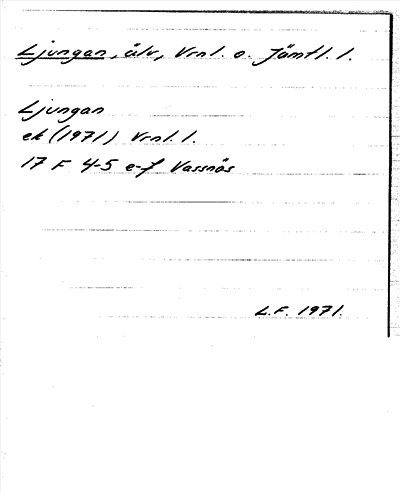 Ljungan, älv, Vrnl. o. Jämtl. l.
Ljungan
ek (1971) Vrnl. l.
17 F 4-5 e-f Vassnäs
L.F. 1971.